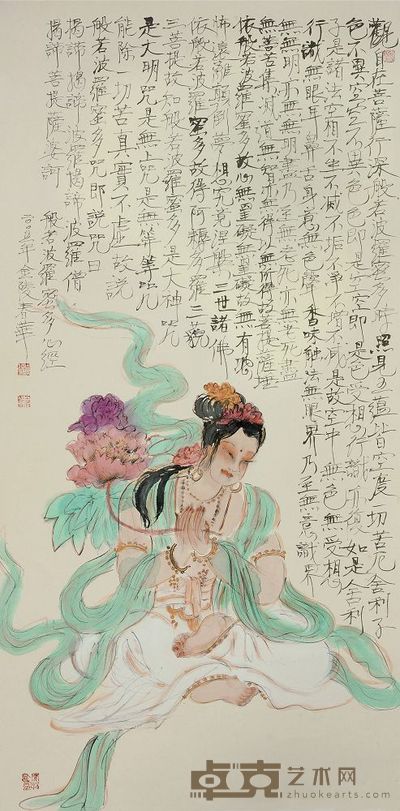 觀自在菩薩行深般若波羅蜜多時照見五蘊皆空度一切苦厄舍利子
色不異空空不異色色即是空空即是色受想行識亦復如是舍利
子是諸法空相不生不滅不垢不淨不增不減是故空中無色無受想
行識無眼耳鼻舌身意無色聲香味觸法無眼界乃至無意識界
無無明亦無無明盡乃至無老死亦無老死盡
無苦集滅道無智亦無得以無所得故菩提薩埵
依般若波羅蜜多故心無罣礙無罣礙故無有恐
怖遠離顛倒夢想究竟涅槃三世諸佛
依般若波羅蜜多故得阿耨多羅三藐
三菩提故知般若波羅蜜多是大神咒
是大明咒是無上咒是無等等咒
能除一切苦真實不虛故說
般若波羅蜜多咒即說咒曰
揭諦揭諦波羅揭諦波羅僧
揭諦菩提薩婆訶 般若波羅蜜多心經
年 春華
卓克艺术网
zhuokearts.com